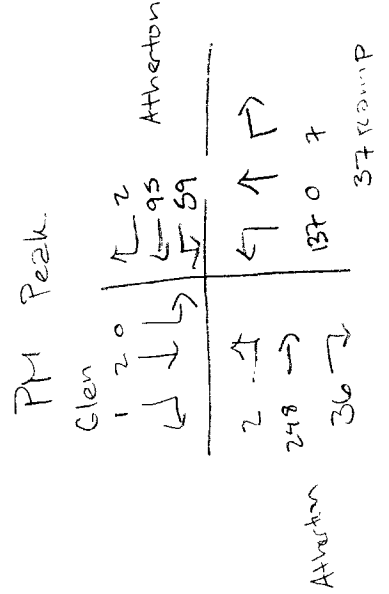 PM Peak
Glen
1 2 0
2
95
59
Atherton
2
248
36
Atherton
137 0 7
37 ramp